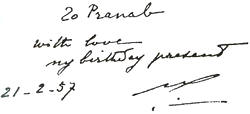 To Pranab
with love
my birthday present
21-2-57